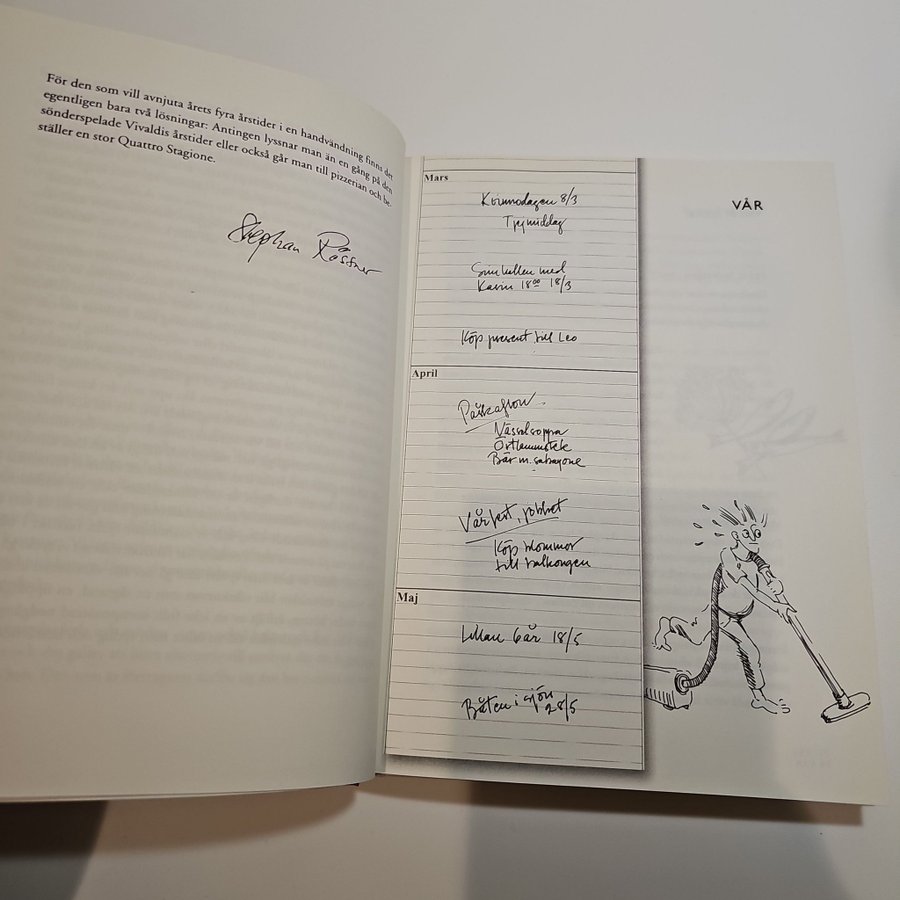 För den som vill avnjuta årets fyra årstider i en handvändning finns det
egentligen bara två lösningar: Antingen lyssnar man än en gång på den
sönderspelade Vivaldis årstider eller också går man till pizzerian och be-
ställer en stor Quattro Stagione.
Stephan Rössner
Mars
Kvinnodagen 8/3
Tjejmiddag
Simhallen med
Karin 18⁰⁰ 18/3
Köp present till Leo
April
Påskafton
Nässelsoppa
Örtlammstek
Bär m. sabayone
Vårfest, jobbet
Köp blommor
till balkongen
Maj
Lillan 6 år 18/5
Båten i sjön
28/5
VÅR